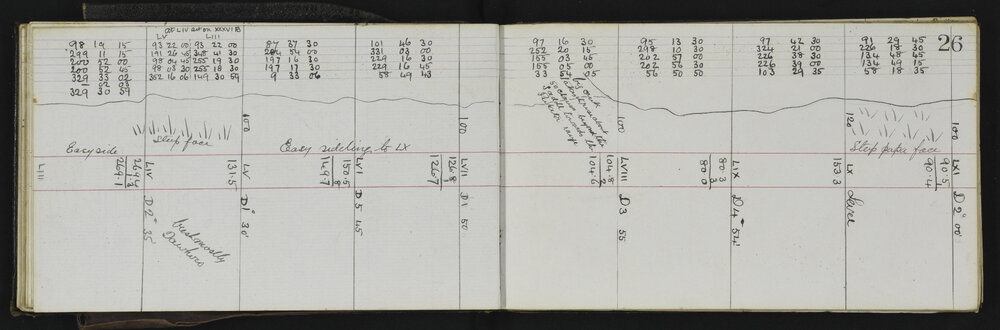 at LIV act on XXXVI B
LV LIII
98 19 15 93 22 00 93 22 00 87 37 30 101 46 30
299 11 15 191 26 45 348 41 30 284 54 00 331 03 00
200 52 00 98 04 45 255 19 30 197 16 30 229 16 30
200 52 45 98 03 30 255 18 30 197 17 30 229 16 45
329 33 02 352 16 06 149 30 59 9 33 06 58 49 43
02 03
329 30 59
100
100
Steep face
Easy side
Easy sidling to LX
LIII
269.4
1.3
269.1
LIV
D 2° 35
131.5
LV
D 1° 30'
150.5
.8
149.7
LVI
D 5 45
126.8
.1
126.7
LVII
D 1 50
bush mostly
Dawhero
26
97 16 30 95 13 30 97 42 30 91 29 45
252 20 15 298 10 30 324 21 00 226 18 30
155 03 45 202 57 00 226 38 30 134 48 45
155 05 00 202 56 30 226 39 00 134 49 15
33 54 05 56 50 50 103 29 35 58 18 35
100
120
100
Steep papa face
104.8
.2
104.6
LVIII
D 3 55
80.3
.3
80.0
LIX
D 4° 54'
153.3
LX
Level
90.5
.1
90.4
LXI
D 2° 00'